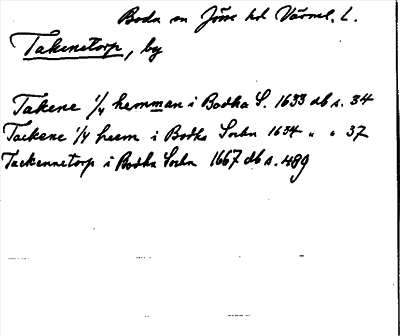 Boda sn Jösse hd Värml. L.
Takenetorp, by
Takene 1/4 hemman i Bodha S. 1633 db s. 34
Tackene 1/4 hem i Bodha Sochn 1634 " " 37
Tackennetorp i Bodha Sochn 1667 db s. 489